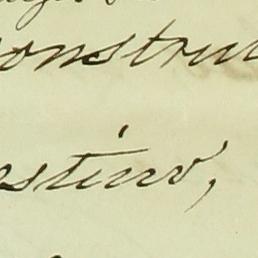 onstru
estino,